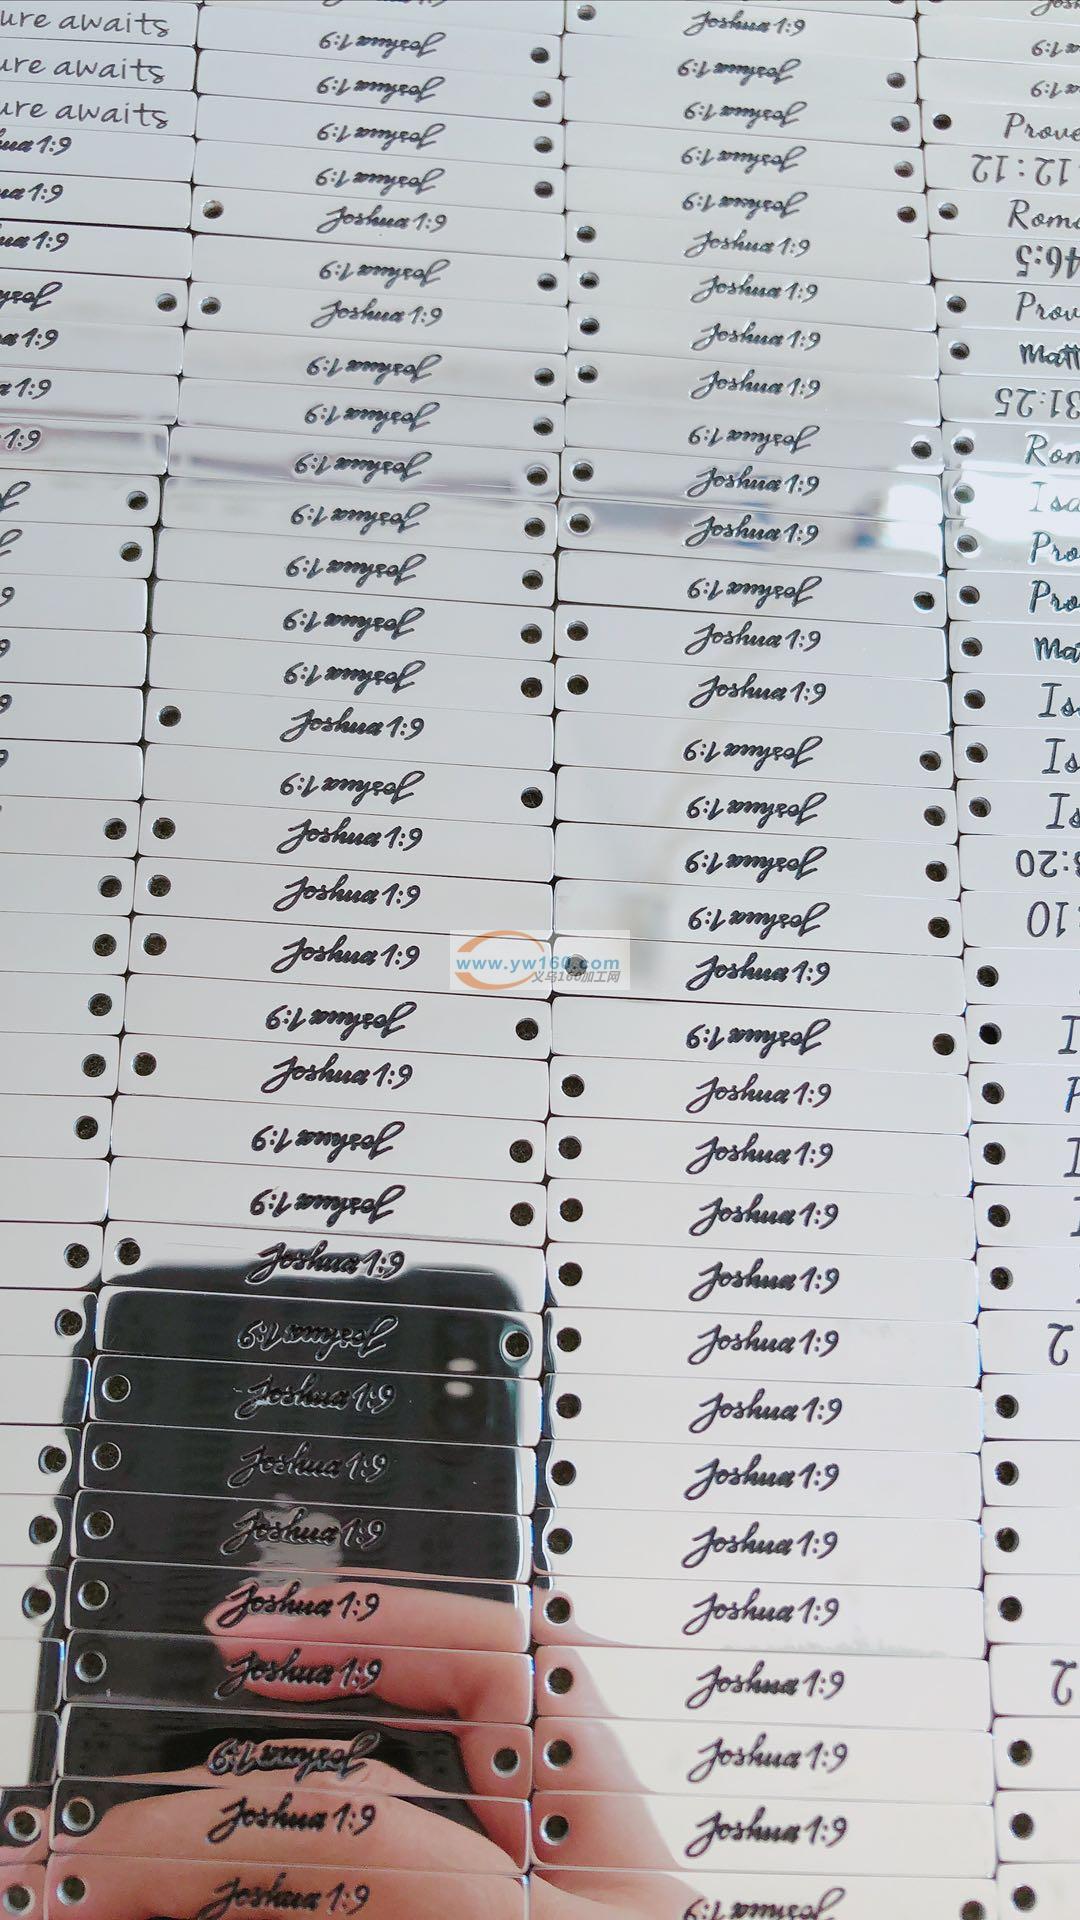 ure awaits
ure awaits
ure awaits
1:9
1:9
1:9
1:9
1:9
1:9
Joshua 1:9
Joshua 1:9
Joshua 1:9
Joshua 1:9
Joshua 1:9
Joshua 1:9
Joshua 1:9
Joshua 1:9
Joshua 1:9
Joshua 1:9
Joshua 1:9
Joshua 1:9
Joshua 1:9
Joshua 1:9
Joshua 1:9
Joshua 1:9
Joshua 1:9
Joshua 1:9
Joshua 1:9
Joshua 1:9
Joshua 1:9
Joshua 1:9
Joshua 1:9
Joshua 1:9
Joshua 1:9
Joshua 1:9
Joshua 1:9
Joshua 1:9
Joshua 1:9
Joshua 1:9
Joshua 1:9
Joshua 1:9
Joshua 1:9
Joshua 1:9
Joshua 1:9
Joshua 1:9
Joshua 1:9
Joshua 1:9
Joshua 1:9
Joshua 1:9
Joshua 1:9
Joshua 1:9
Joshua 1:9
Joshua 1:9
Joshua 1:9
Joshua 1:9
Joshua 1:9
Joshua 1:9
Joshua 1:9
Joshua 1:9
Joshua 1:9
Joshua 1:9
Joshua 1:9
www.yw160.com
义乌160加工网
Joshua 1:9
Joshua 1:9
Joshua 1:9
Joshua 1:9
Joshua 1:9
Joshua 1:9
Joshua 1:9
Joshua 1:9
Joshua 1:9
Joshua 1:9
Joshua 1:9
Joshua 1:9
Joshua 1:9
Joshua 1:9
Joshua 1:9
1:9
1:9
Prove
12:12
Roma
46:5
Prov
Matt
31:25
Rom
Isa
Pro
Pro
Mat
Is
Is
Is
:20
:10